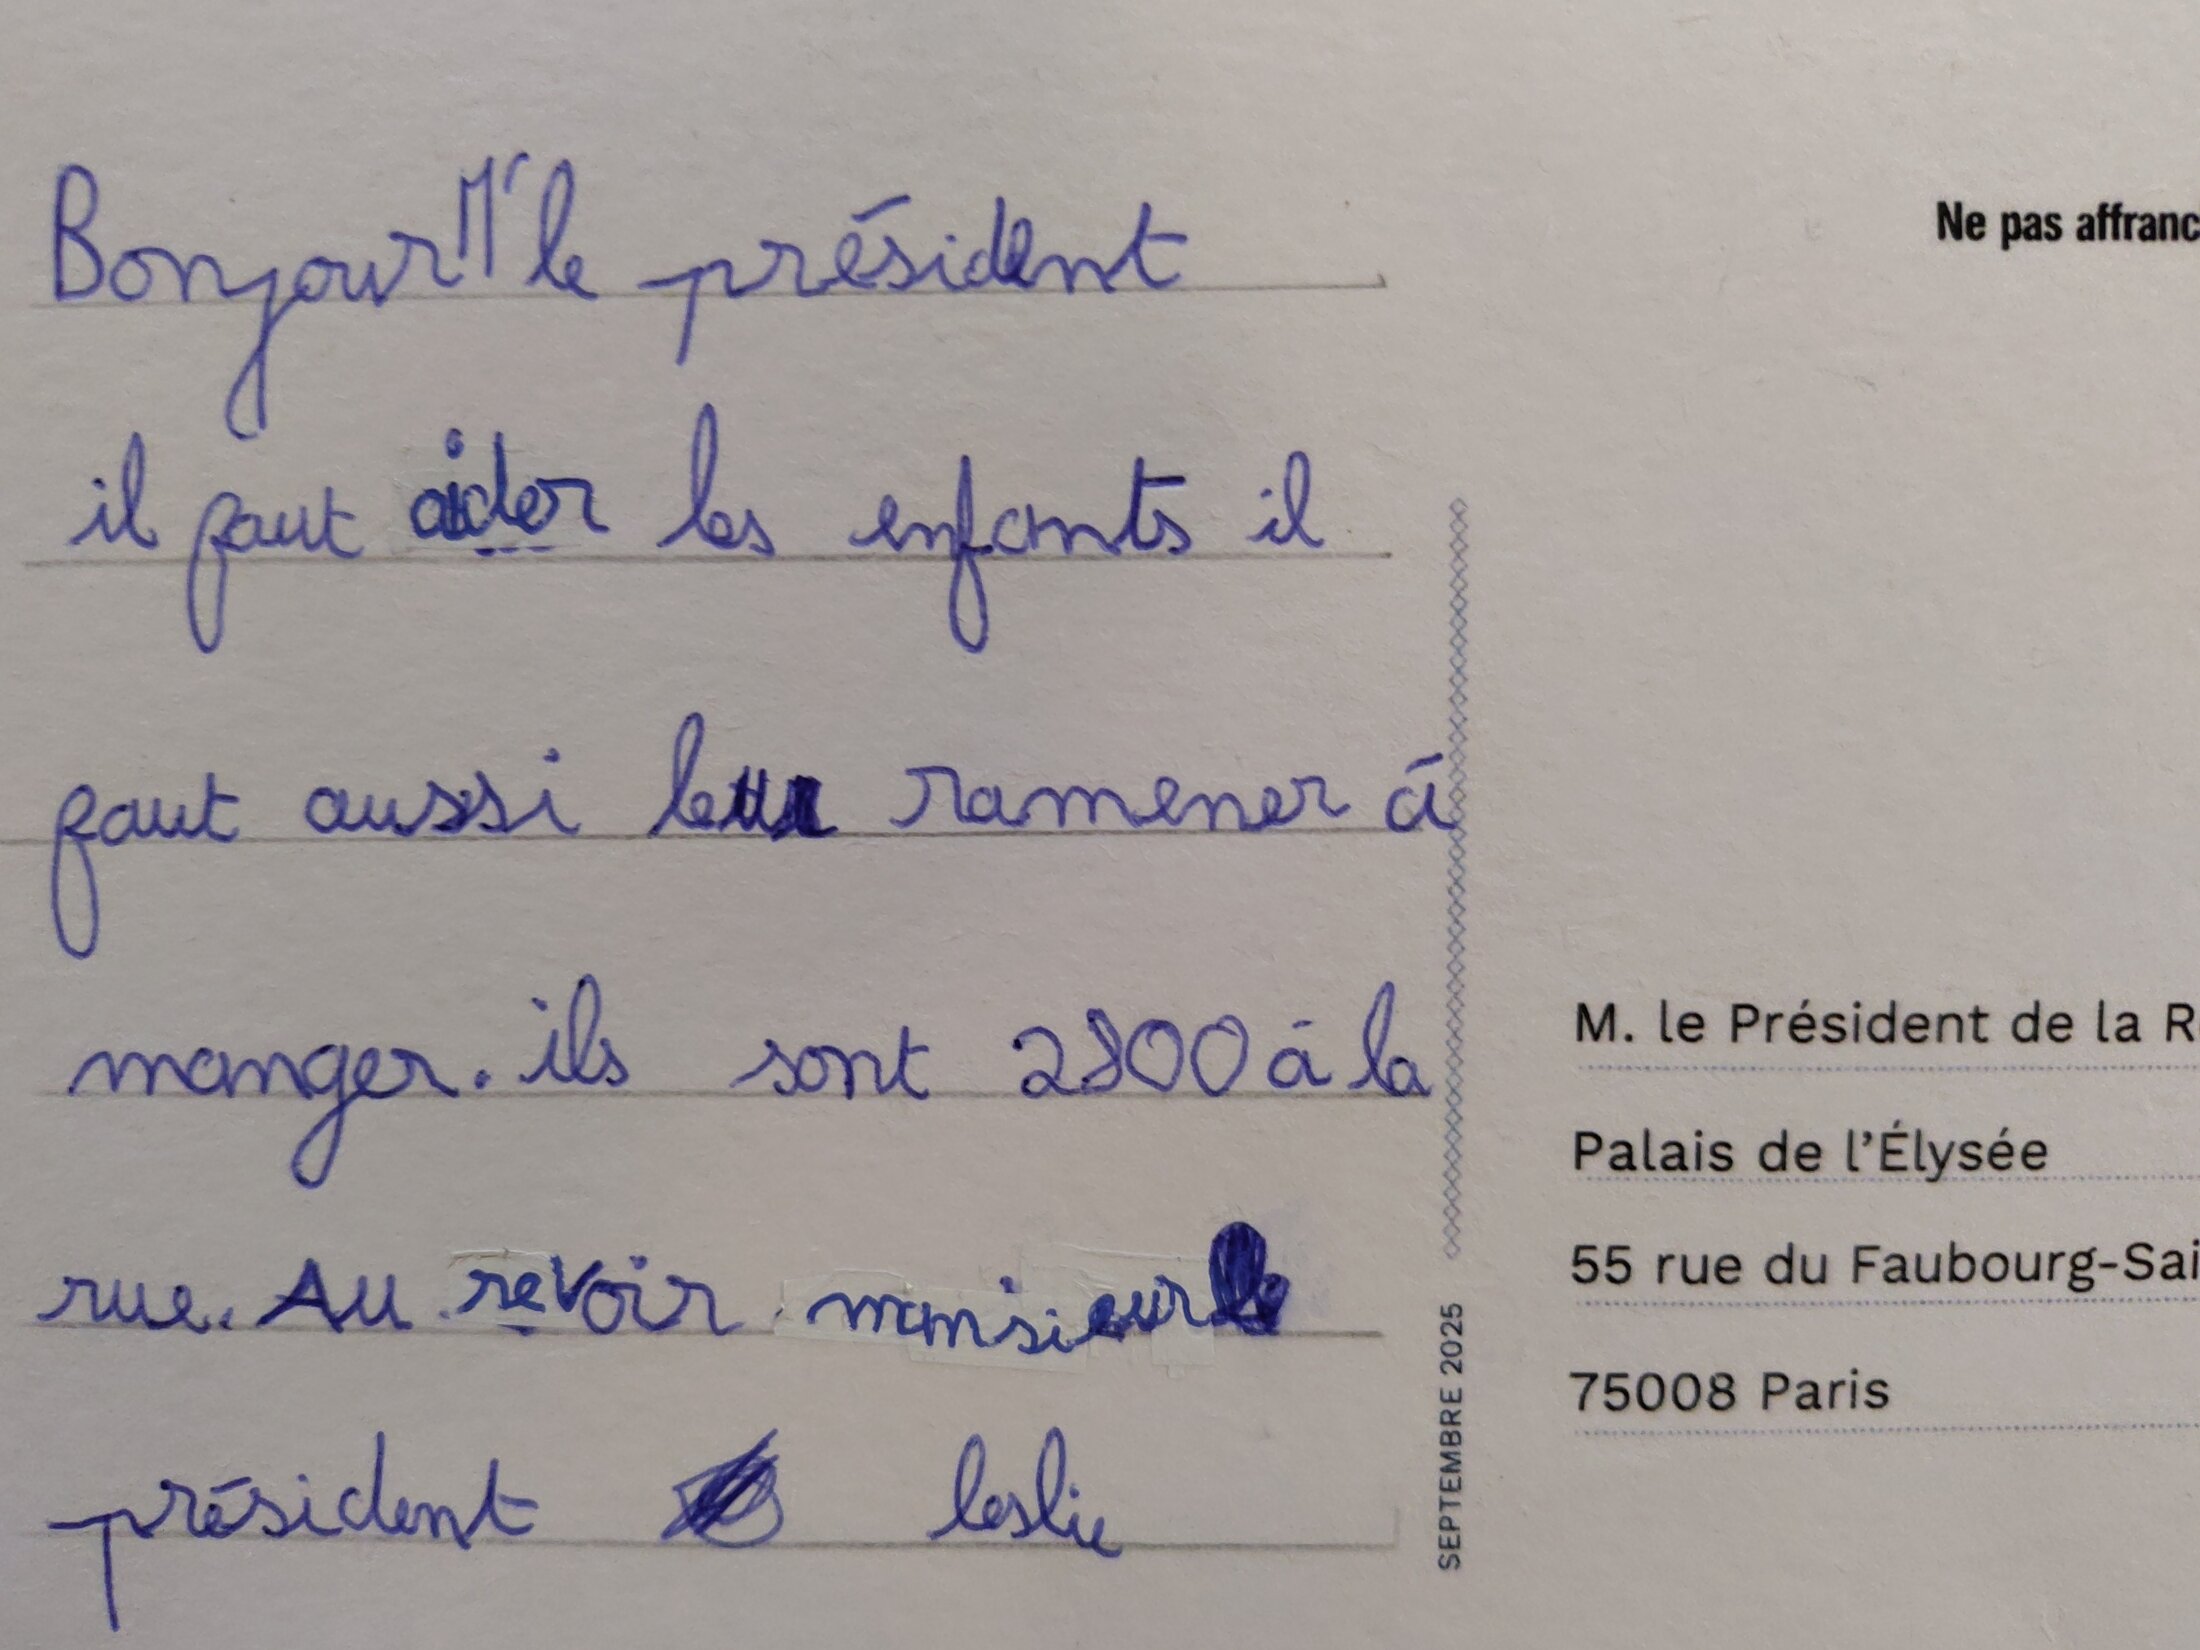 Bonjour M. le président
il faut aider les enfants il
faut aussi leur ramener à
manger. ils sont 2800 à la
rue. Au revoir monsieur le
président leslie
Ne pas affranc
M. le Président de la R
Palais de l'Élysée
55 rue du Faubourg-Sai
75008 Paris
SEPTEMBRE 2025